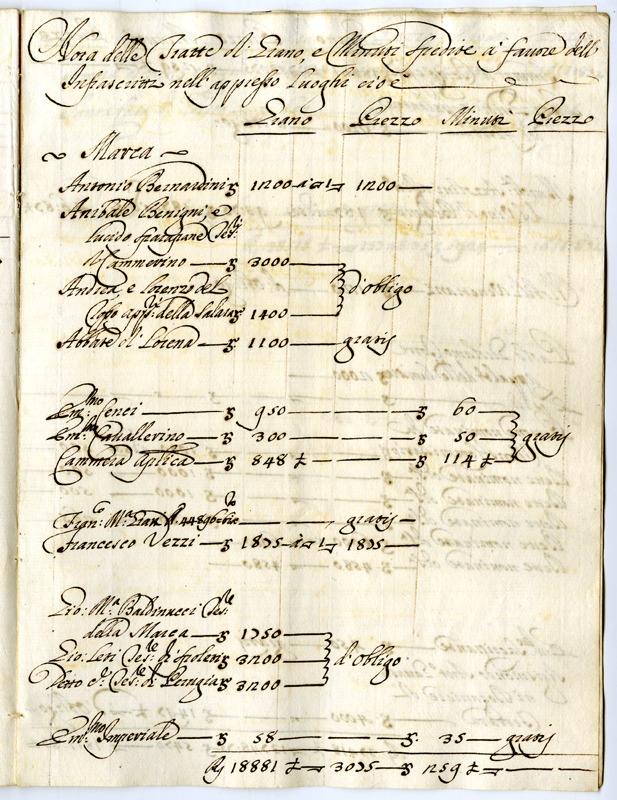 Nota delle Tratte di Grano, e Minuti spedite à favore dell'
Infrascritti nell'appresso Luoghi cioè
Grano Prezzo Minuti Prezzo
Marca
Antonio Bernardini 1200 à 1 1200
Anibale Benigni, e
Lucido Tes:
di Cammerino 3000
Andrea, e Lorenzo del d'obligo
della Salara 1400
Abbate di Lorena 1100 gratis
Em:mo Cenci 950 60
Em:mo Cavallerino 300 50 gratis
Cammera Aplica 848 ½ 114 ½
Fran:co M.a gratis
Francesco Verzi 1835 à 1 1835
Gio: M.a Baldinucci Tes:re
della Marca 1750
Gio: Leti Tes:re di Spoleti 3200 d'obligo
Detto e Tes:re di Perugia 3200
Em:mo Imperiale 58 35 gratis
18881 ½ 3035 259 ½